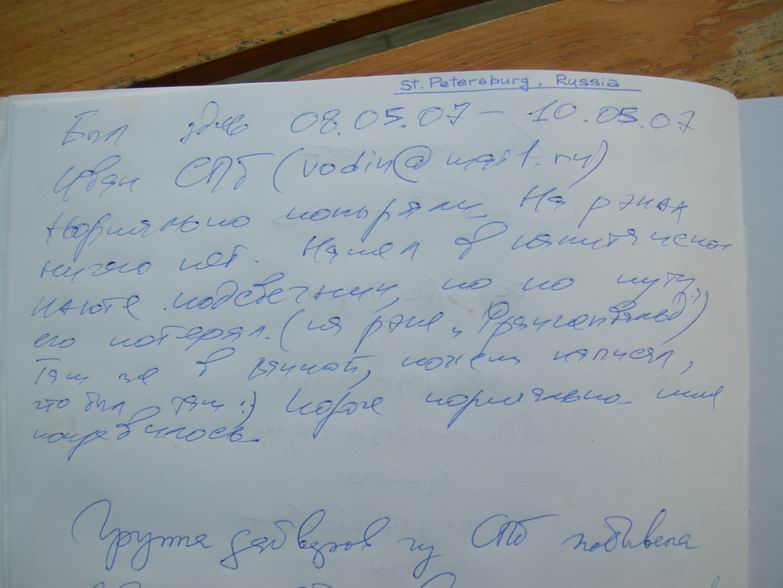 St. Petersburg, Russia
Был здесь 08.05.07 – 10.05.07
Иван СПб (vodin@mail.ru)
Нормально поныряли. На рэках
ничего нет. Нашел в капитанской
каюте подсвечник, но по пути
его потерял. (на рэке "
Там же в ванной, ножом написал,
что был там :) Короче нормально. мне
понравилось.
Группа дайверов из СПб побывала